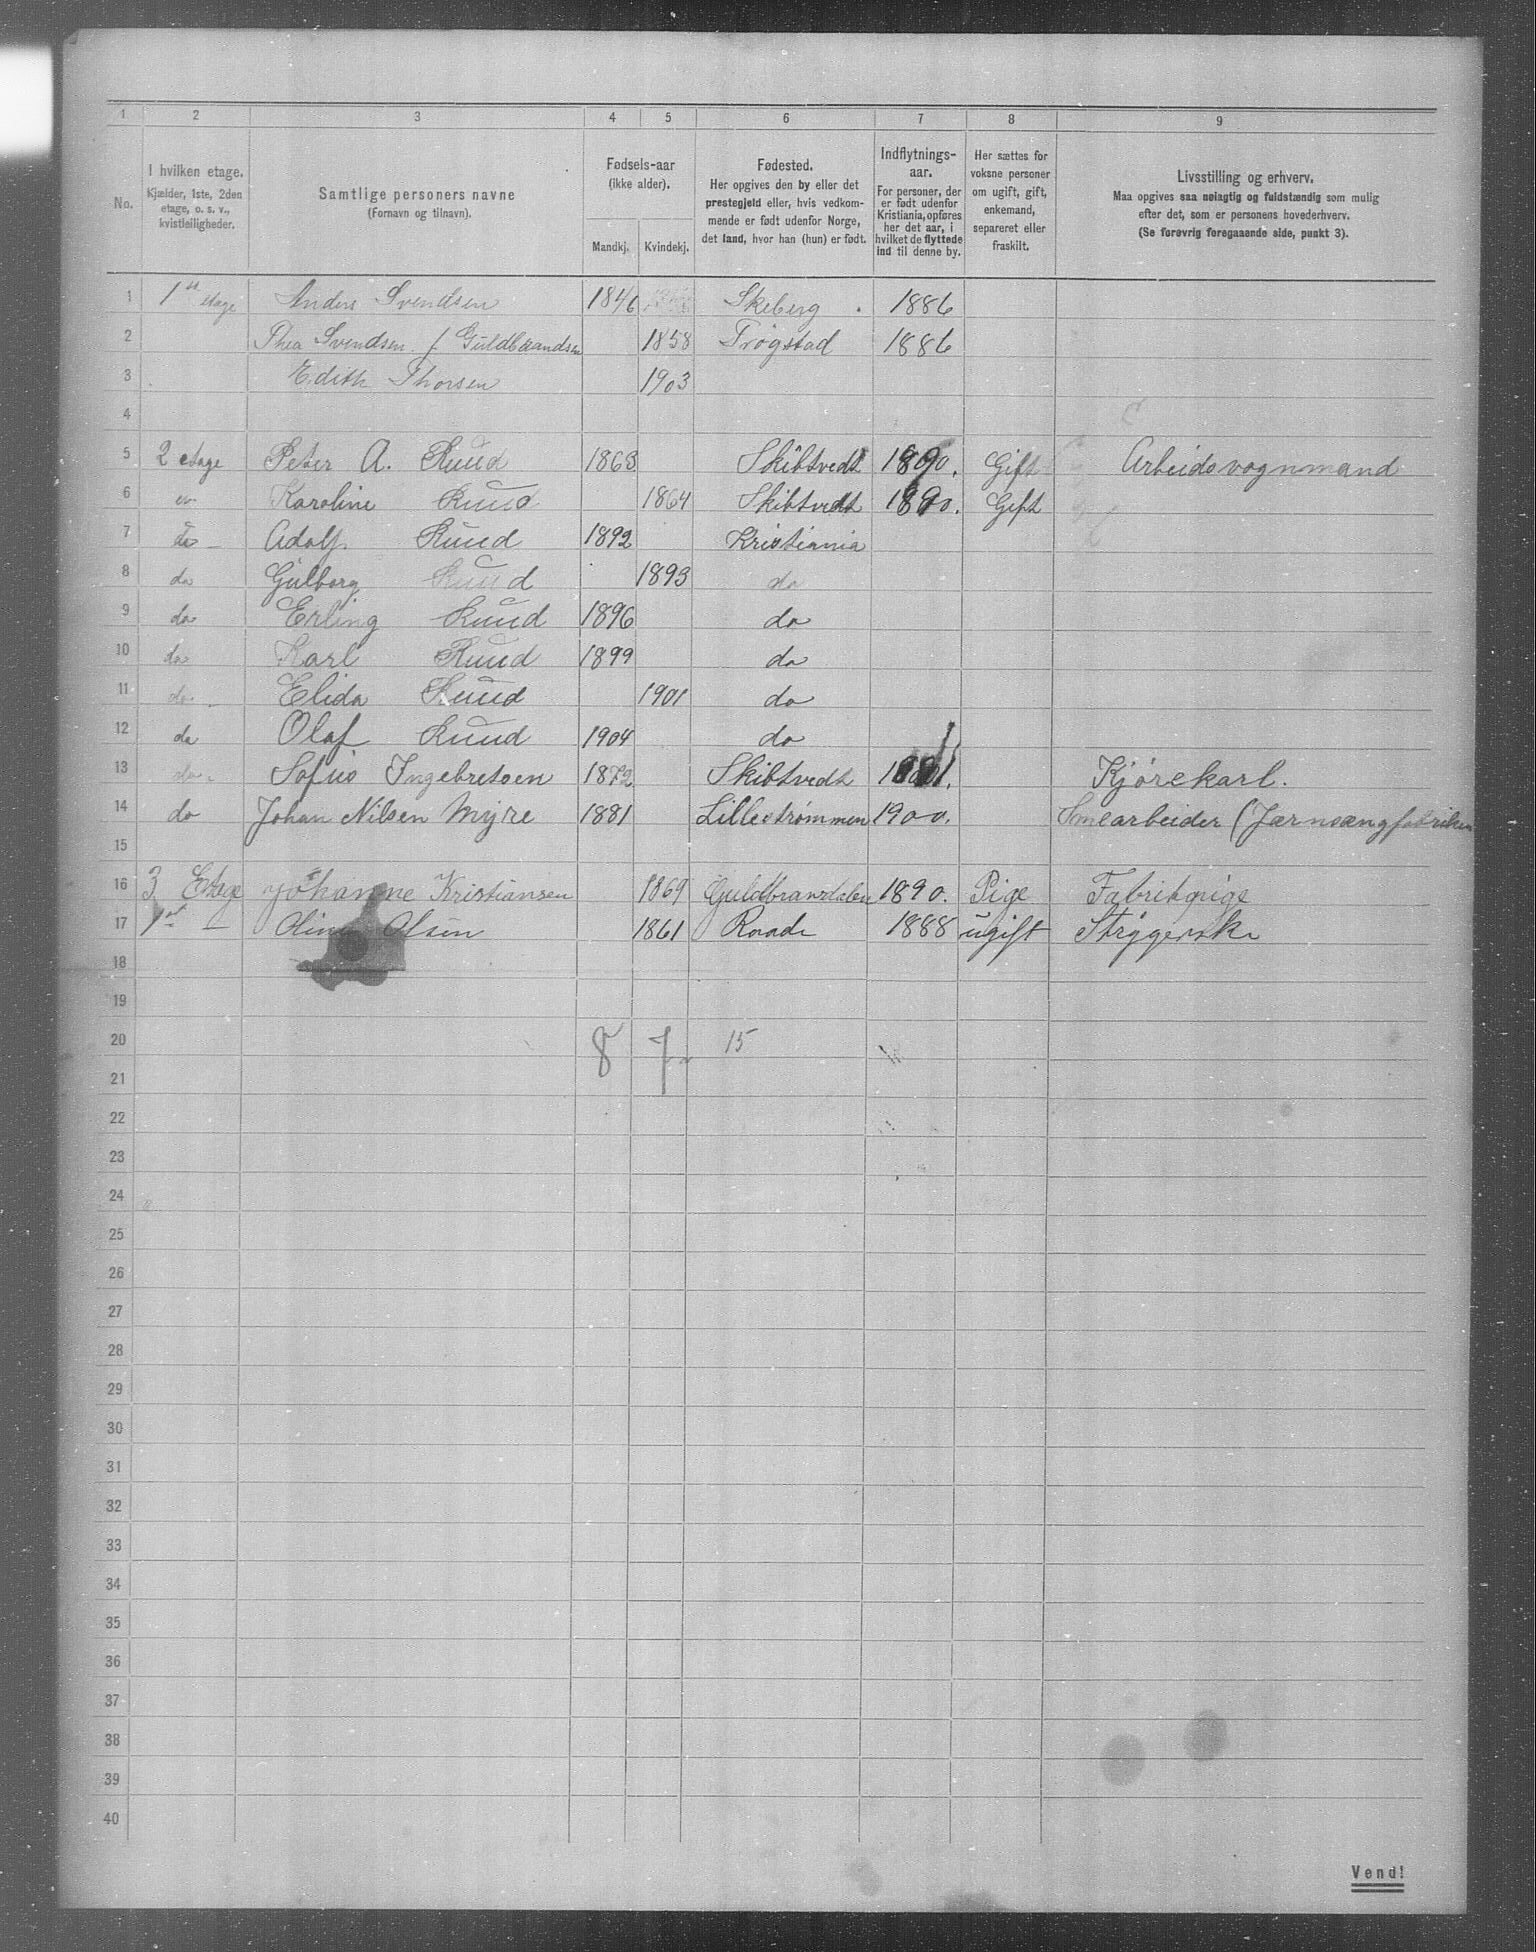 1 2 3 4 5 6 7 8 9
No.
I hvilken etage.
Kjælder, 1ste, 2den
etage, o. s. v.,
kvistleiligheder.
Samtlige personers navne
(Fornavn og tilnavn).
Fødsels-aar
(ikke alder).
Mandkj. Kvindekj.
Fødested.
Her opgives den by eller det
prestegjeld eller, hvis vedkom-
mende er født udenfor Norge,
det land, hvor han (hun) er født.
Indflytnings-
aar.
For personer, der
er født udenfor
Kristiania, opføres
her det aar, i
hvilket de flyttede
ind til denne by.
Her sættes for
voksne personer
om ugift, gift,
enkemand,
separeret eller
fraskilt.
Livsstilling og erhverv.
Maa opgives saa nøiagtig og fuldstændig som mulig
efter det, som er personens hovederhverv.
(Se forøvrig foregaaende side, punkt 3).
1 1st etage Anders Svendsen 1846 Skeberg 1886
2 Thea Svendsen f Guldbrandsen 1858 Trøgstad 1886
3 Edith Thorsen 1903
4
5 2 etage Peter A. Ruud 1863 Skibtvedt 1890. Gift Arbeidsvognmand
6 Karoline Ruud 1864 Skibtvedt 1890. Gift
7 do Adolf Ruud 1892 Kristiania
8 do Gulborg Ruud 1893 do
9 do Erling Ruud 1896 do
10 do Karl Ruud 1899 do
11 do Elida Ruud 1901 do
12 do Olaf Ruud 1904 do
13 do Sofus Ingebretsen 1872 Skibtvedt Kjørekarl.
14 do Johan Nilsen Myre 1881 Lillestrømmen 1900. (Jernsengfabriken
15
16 3 Etage Johanne Kristiansen 1869 Guldbransdalen 1890. Pige Fabrikpige
17 1st Olsen 1861 Raade 1888 ugift Strygerske
18
19
20 8 7 15
21
22
23
24
25
26
27
28
29
30
31
32
33
34
35
36
37
38
39
40
Vend!